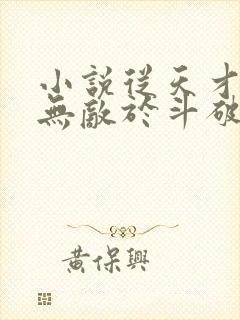 小説從天才
無敵於斗破
黃保興